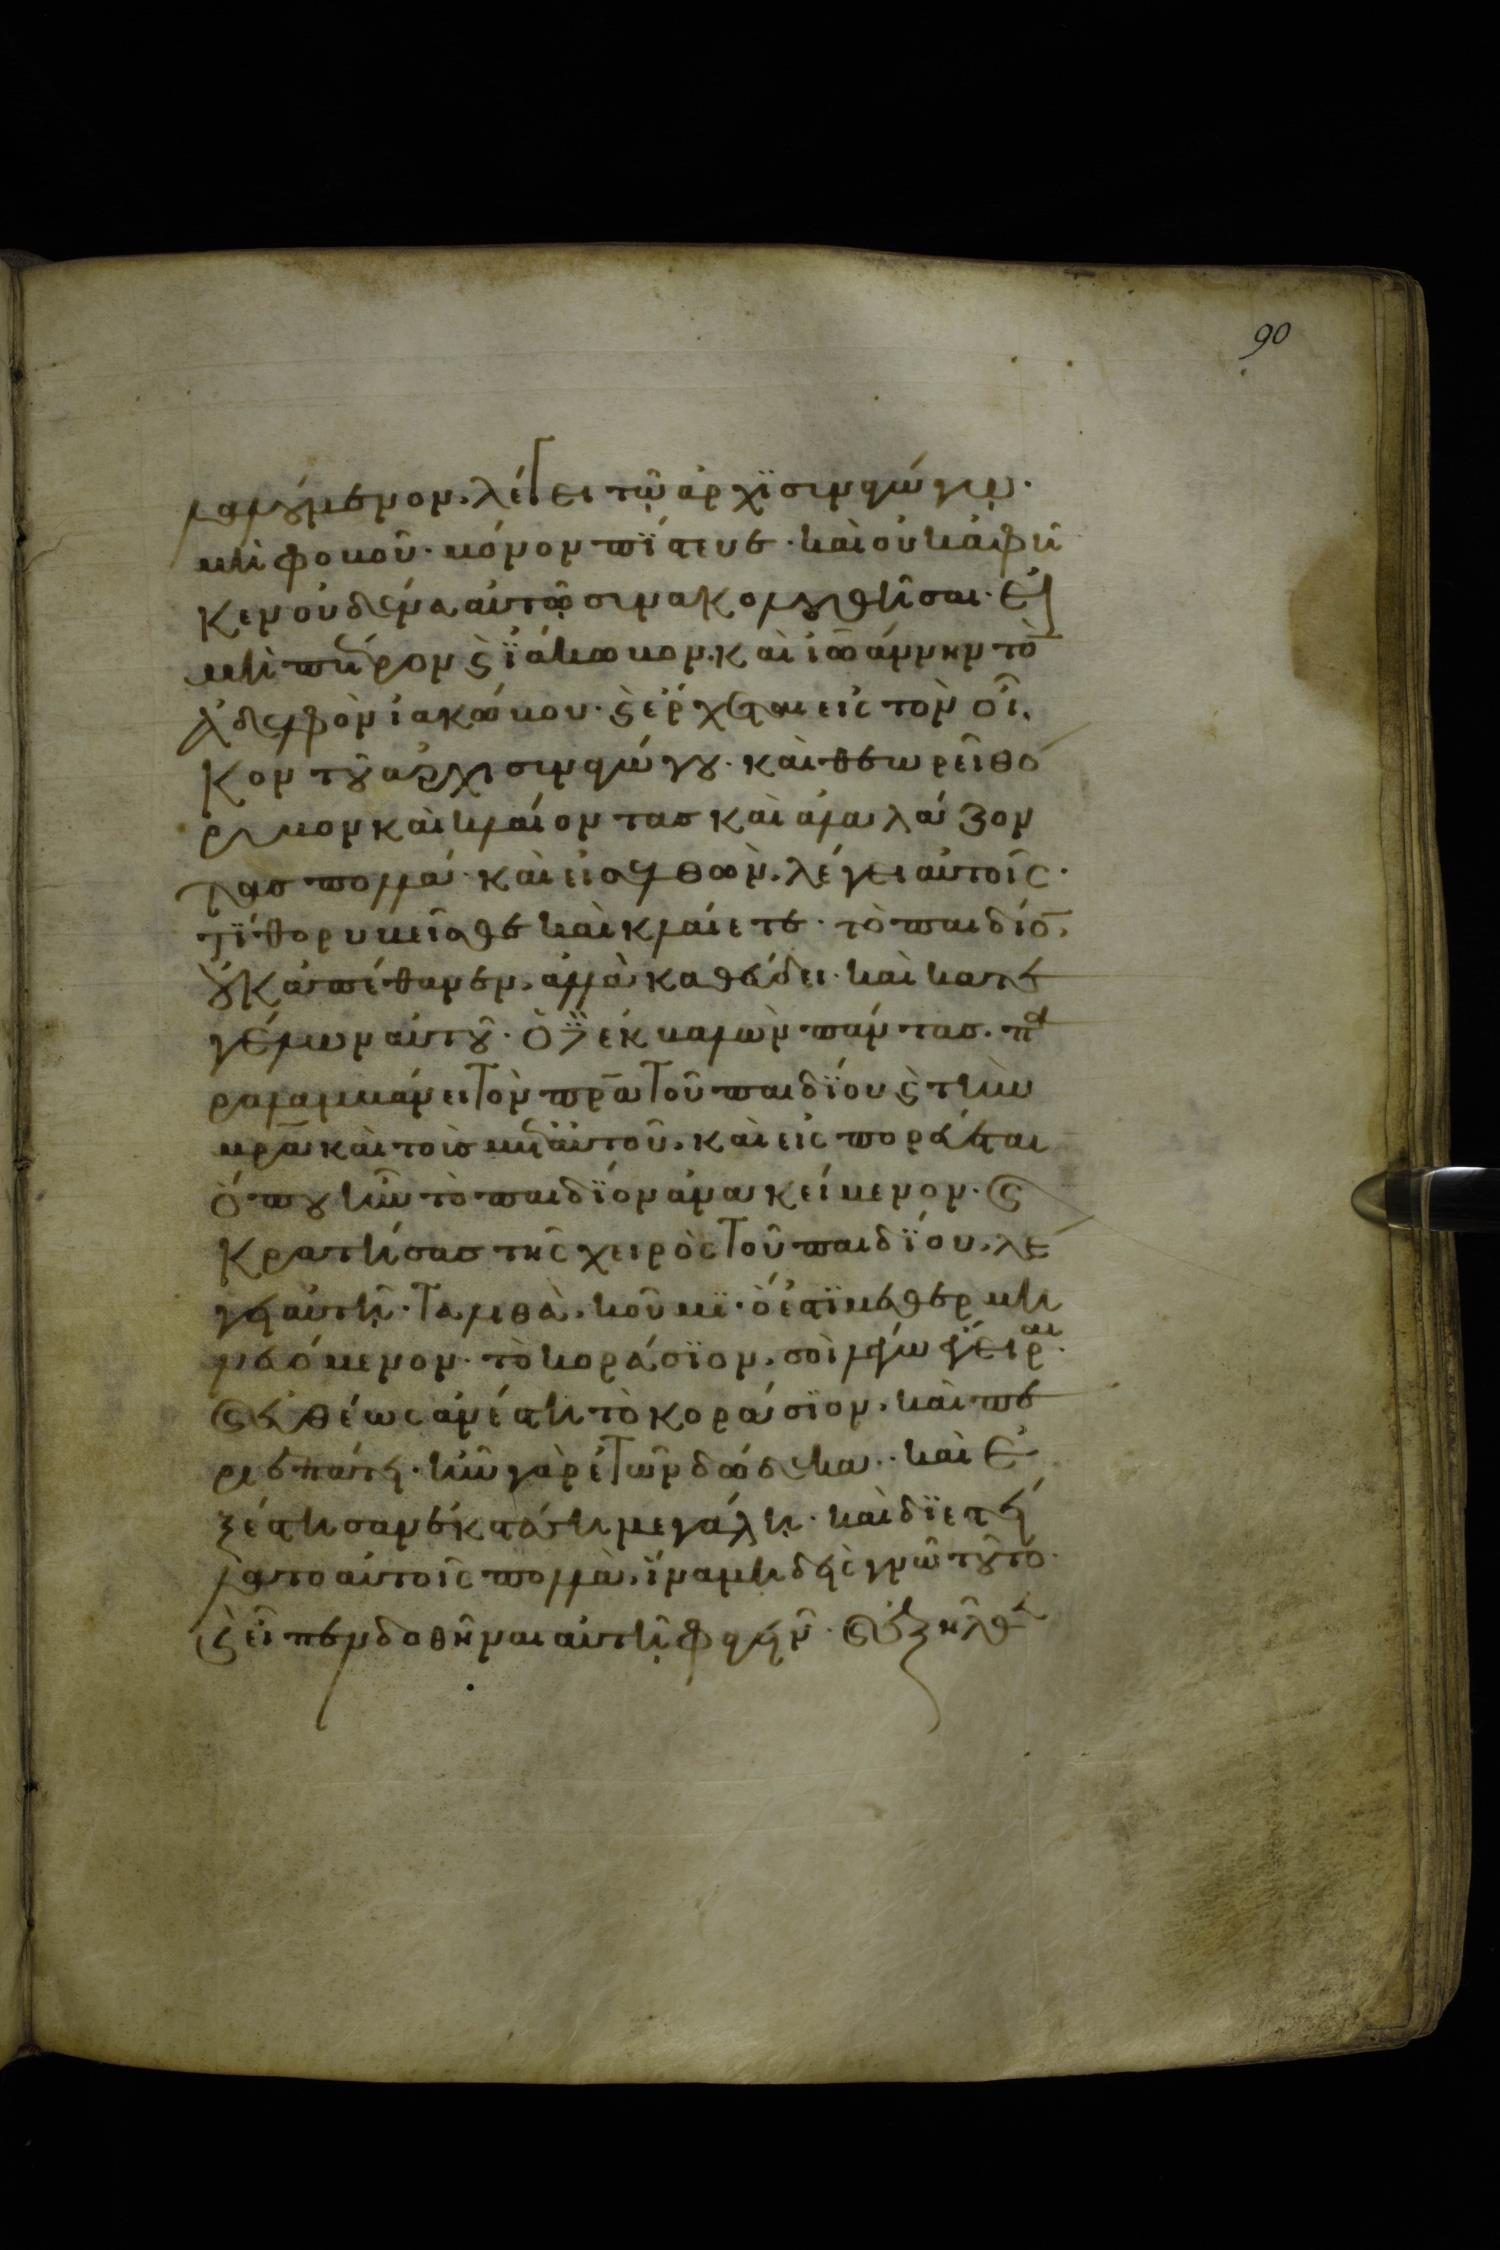 90
λαλούμενον. λέγει τῷ ἀρχϊσυναγώγῳ·
μὴ φοβοῦ· μόνον πΐστευε· καὶ οὐκ ἀφῆ
κεν οὐδένα αὐτῷ συνακολουθῆσαι· εἰ
μὴ πέτρον ϗ ϊάκωβον. καὶ ἰωάννην τὸ̄
ἀδελφὸν ἰακώβου· ϗ ἔρχεται εἰς τὸν οἶ
κον τοῦ ἀρχισυναγώγου· καὶ θεωρεῖ θό
ρυβον καὶ κλαίοντας καὶ ἀλαλάζον
τας πολλά· καὶ εἰσελθὼν. λέγει αὐτοῖς·
τΐ θορυβεῖσθε καὶ κλαίετε· τὸ παιδίο̄.
οὐκ ἀπέθανεν. ἀλλὰ καθεύδει· καὶ κατε
γέλων αὐτοῦ· ὁ δὲ ἐκβαλὼν πάντας. πα
ραλαμβάνει τὸν πρ̄α τοῦ παιδΐου ϗ τὴν
μρ̄α καὶ τοὺς μετ αὐτοῦ. καὶ εἰσπορεύεται
ὅπου ἦν τὸ παιδΐον ἀνακείμενον· ϗ
κρατήσας τῆς χειρὸς τοῦ παιδΐου. λέ
γει αὐτῇ· ταλιθὰ. κοῦμϊ· ὅ ἐστϊ μεθερμη
νευόμενον· τὸ κοράσϊον. σοὶ λέγω ἔγειραι·
ϗ εὐθέως ἀνέστη τὸ κοράσϊον. καὶ πε
ριεπάτει· ἦν γὰρ ἐτῶν δώδεκα·· καὶ ἐ
ξέστησαν ἐκστάσει μεγάλῃ· καὶ δϊεστεί
λατο αὐτοῖς πολλὰ. ἵνα μηδεὶς γνῶ τοῦτο·
ϗ εἶπεν δοθῆναι αὐτῇ φαγεῖν· ϗ ἐξῆλθεν